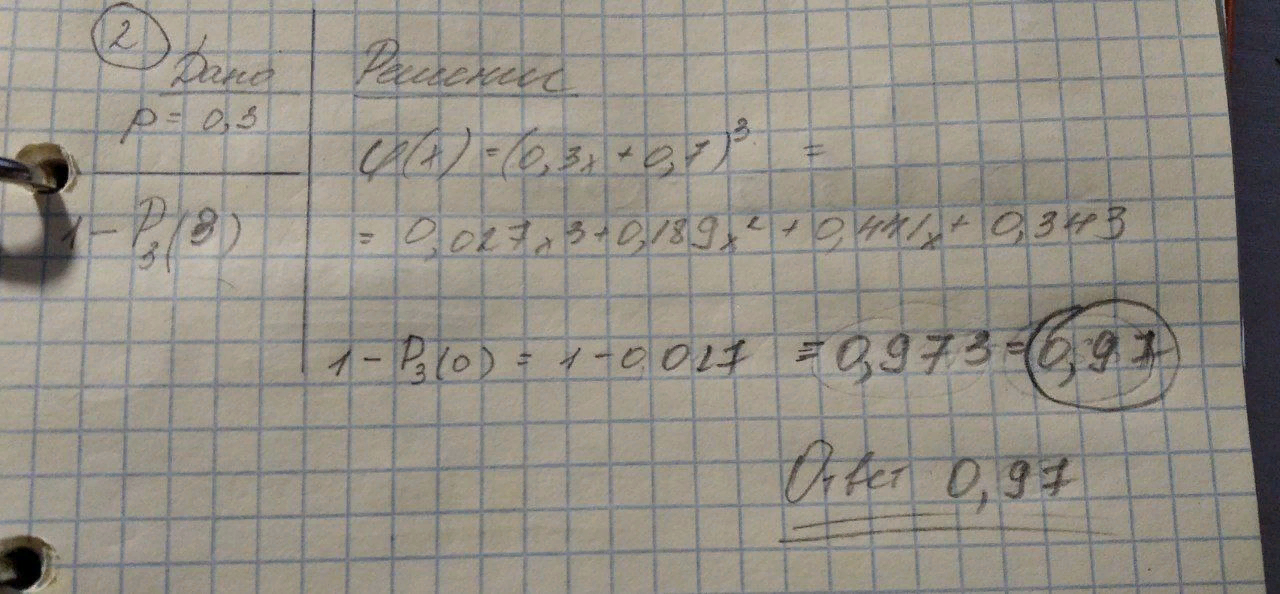 2
Дано
p = 0,3
1 - P₃(3)
Решение
φ(x) = (0,3x + 0,7)³ =
= 0,027x³ + 0,189x² + 0,441x + 0,343
1 - P₃(0) = 1 - 0.027 = 0,973 = 0,97
Ответ 0,97